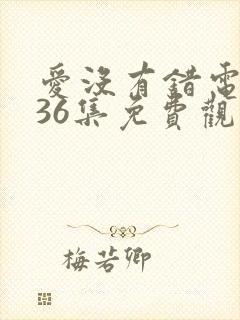 愛沒有錯電
36集免費觀
梅若卿